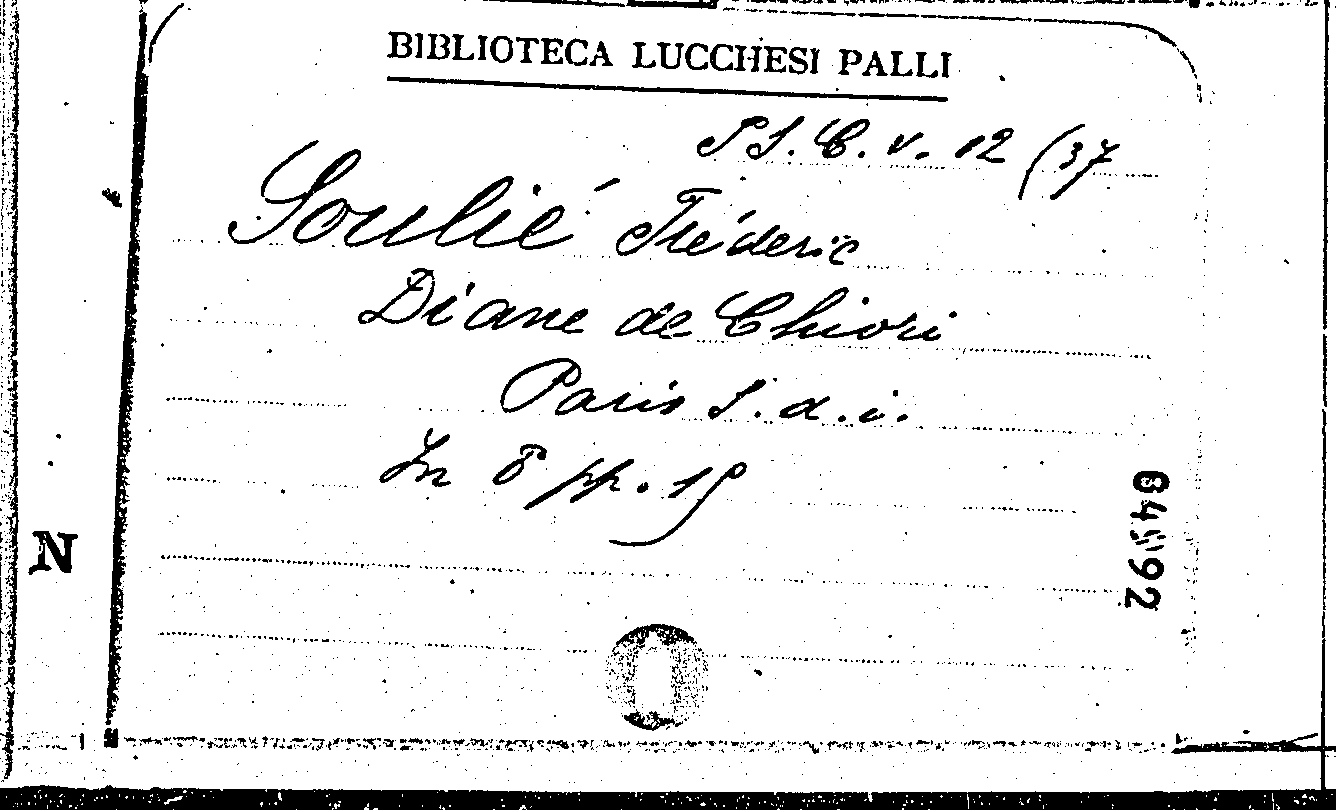 BIBLIOTECA LUCCHESI PALLI
P S. C. v. 12 (37
Soulié Fréderic
Diane de Chivri
Paris S. d. i.
In 8 pp. 19
N
84992